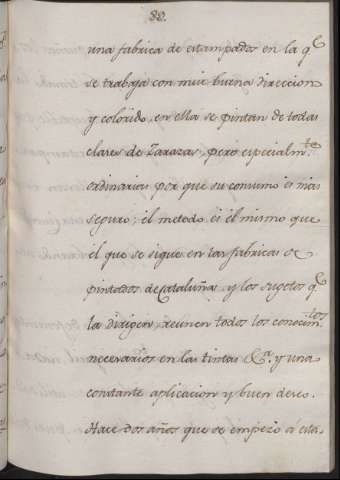 88.
una fabrica de estampados en la q.e
se trabaja con mui buena direccion
y colorido, en ella se pintan de todas
clases de Zarazas, pero especialm.te
ordinarias por que su consumo es mas
seguro; el metodo es el mismo que
el que se sigue en las fabricas de
pintados de Cataluña y los sugetos q.e
la dirigen, reunen todos los conocim.tos
necesarios en las tintas &.a y una
constante aplicacion y buen deseo.
Hace dos años que se empezó á esta-